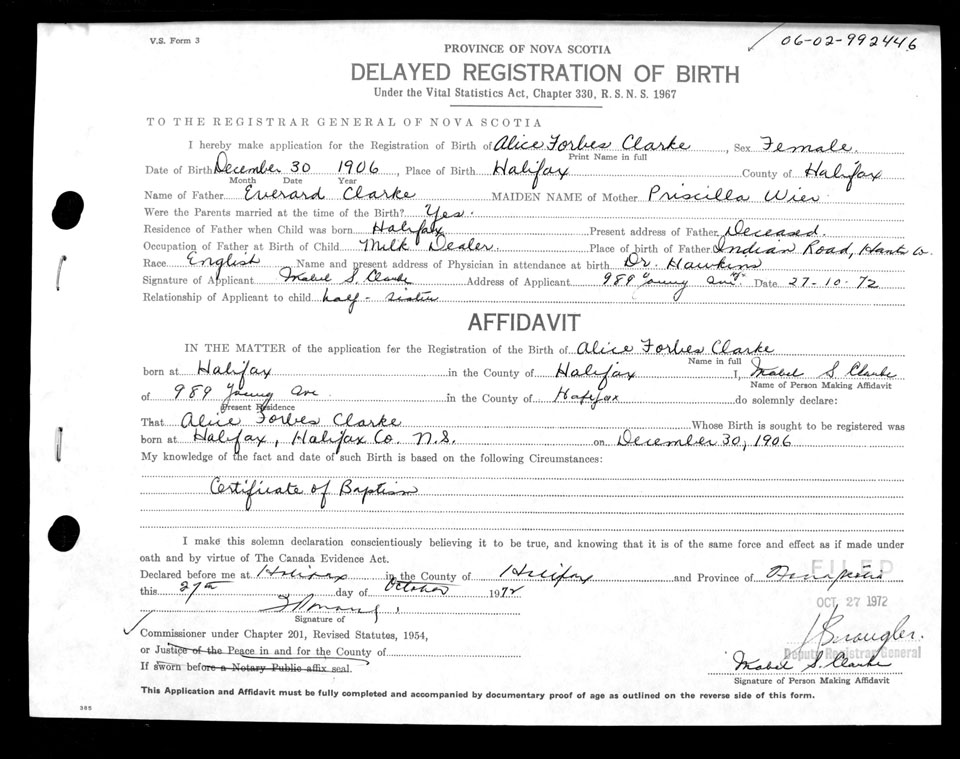 V.S. Form 3
06-02-992446
PROVINCE OF NOVA SCOTIA
DELAYED REGISTRATION OF BIRTH
Under the Vital Statistics Act, Chapter 330, R.S.N.S. 1967
TO THE REGISTRAR GENERAL OF NOVA SCOTIA
I hereby make application for the Registration of Birth of Alice Forbes Clarke, Sex Female.
Print Name in full
Date of Birth December 30 1906, Place of Birth Halifax County of Halifax
Month Date Year
Name of Father Everard Clarke MAIDEN NAME of Mother Priscilla Wier
Were the Parents married at the time of the Birth? Yes.
Residence of Father when Child was born Halifax Present address of Father Deceased.
Occupation of Father at Birth of Child Milk Dealer Place of birth of Father Indian Road, Hants Co.
Race English Name and present address of Physician in attendance at birth Dr. Hawkins
Signature of Applicant Mabel S. Clarke Address of Applicant 989 Young Ave Date 27-10-72
Relationship of Applicant to child half-sister
AFFIDAVIT
IN THE MATTER of the application for the Registration of the Birth of Alice Forbes Clarke
Name in full
born at Halifax in the County of Halifax I, Mabel S. Clarke
Name of Person Making Affidavit
of 989 Young Ave in the County of Halifax do solemnly declare:
Present Residence
That Alice Forbes Clarke Whose Birth is sought to be registered was
born at Halifax, Halifax Co. N.S. on December 30, 1906
My knowledge of the fact and date of such Birth is based on the following Circumstances:
Certificate of Baptism
I make this solemn declaration conscientiously believing it to be true, and knowing that it is of the same force and effect as if made under
oath and by virtue of The Canada Evidence Act.
FILED
Declared before me at Halifax in the County of Halifax and Province of Nova Scotia
this 27th day of October 1972
OCT 27 1972
Signature of
Commissioner under Chapter 201, Revised Statutes, 1954,
or Justice of the Peace in and for the County of
Deputy Registrar General
If sworn before a Notary Public affix seal.
Mabel S. Clarke
Signature of Person Making Affidavit
This Application and Affidavit must be fully completed and accompanied by documentary proof of age as outlined on the reverse side of this form.
385